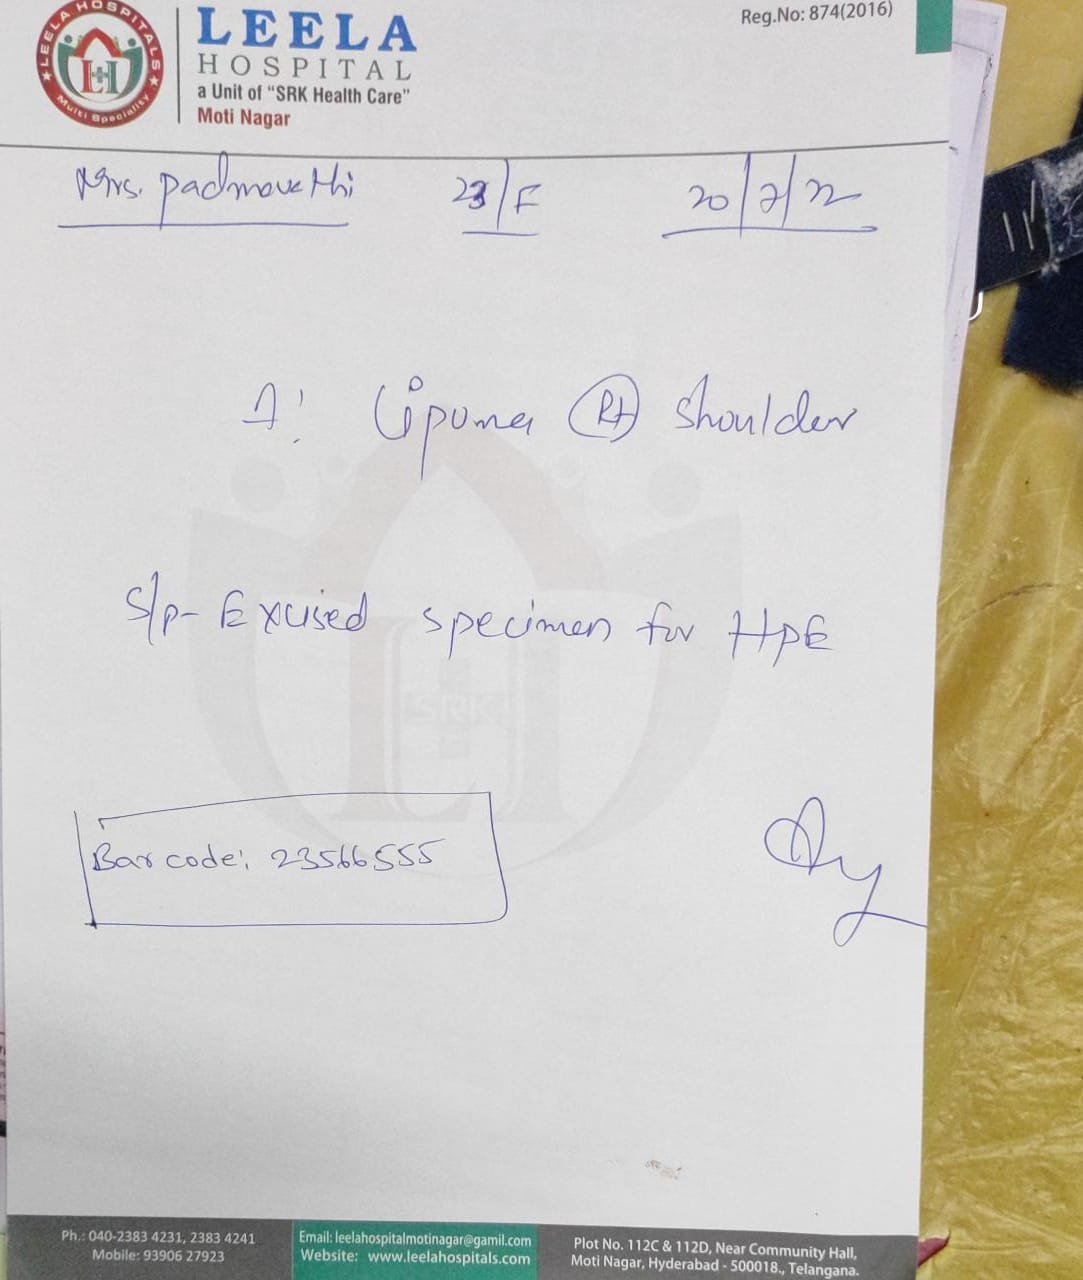 LEELA HOSPITALS
Multi Speciality
LEELA
HOSPITAL
a Unit of "SRK Health Care"
Moti Nagar
Reg.No: 874(2016)
Mrs. Padmavathi 23/F 20/7/22
Δ: Lipoma (Rt) shoulder
S/p- Excised specimen for HPE
SRK
Bar code: 23566555
Ph.: 040-2383 4231, 2383 4241
Mobile: 93906 27923
Email: leelahospitalmotinagar@gamil.com
Website: www.leelahospitals.com
Plot No. 112C & 112D, Near Community Hall,
Moti Nagar, Hyderabad - 500018., Telangana.